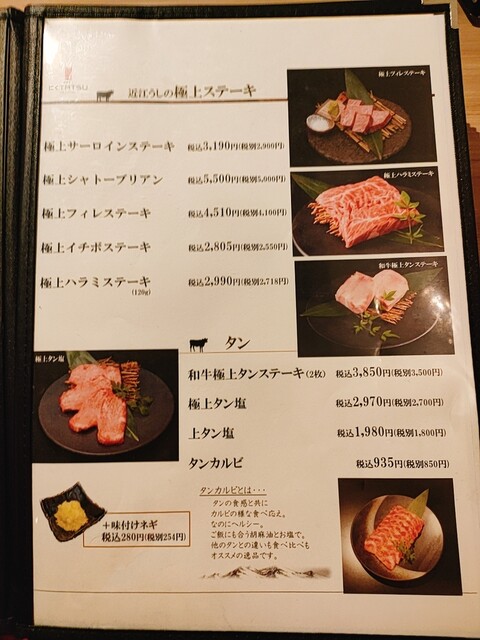 近江うしの極上ステーキ
極上フィレステーキ
極上サーロインステーキ 税込3,190円(税別2,900円)
極上シャトーブリアン 税込5,500円(税別5,000円)
極上フィレステーキ 税込4,510円(税別4,100円)
極上イチボステーキ 税込2,805円(税別2,550円)
極上ハラミステーキ 税込2,990円(税別2,718円)
(120g)
極上ハラミステーキ
和牛極上タンステーキ
タン
極上タン塩
和牛極上タンステーキ(2枚) 税込3,850円(税別3,500円)
極上タン塩 税込2,970円(税別2,700円)
上タン塩 税込1,980円(税別1,800円)
タンカルビ 税込935円(税別850円)
+味付けネギ
税込280円(税別254円)
タンカルビとは・・・
タンの食感と共に
カルビの様な食べ応え。
なのにヘルシー。
ご飯にも合う胡麻油とお塩で。
他のタンとの違いも食べ比べも
オススメの逸品です。